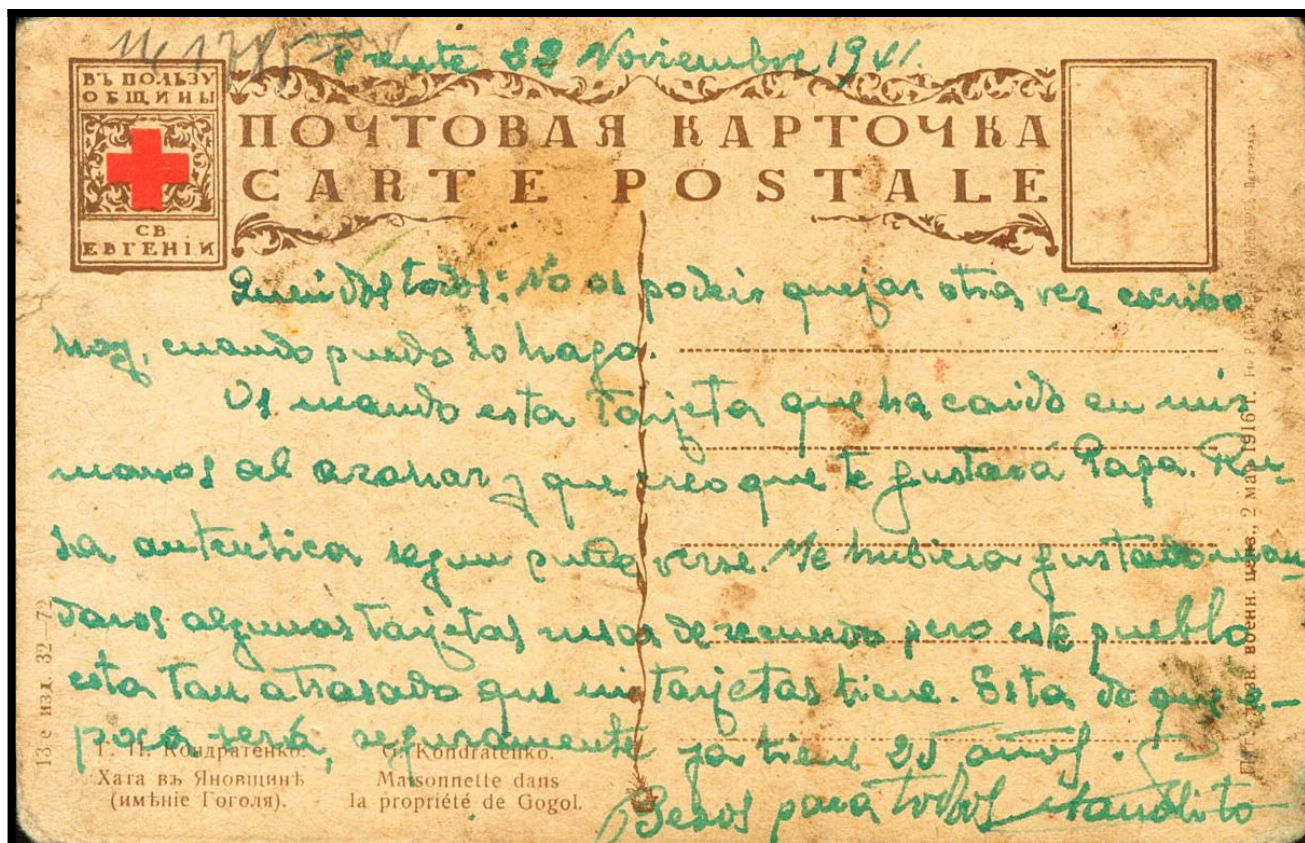 Frente 22 Noviembre 1941.
ВЪ ПОЛЬЗУ
ОБЩИНЫ
СВ
ЕВГЕНІИ
ПОЧТОВАЯ КАРТОЧКА
CARTE POSTALE
Queridos todos: No os podeis quejar otra vez escribo
hoy, cuando puedo lo hago.
Os mando esta tarjeta que ha caido en mis
manos al azahar y que creo que te gustará Papa. Ru-
sa autentica segun puede verse. Me hubiera gustado man
daros algunas tarjetas rusas de recuerdo pero este pueblo
esta tan atrasado que ni tarjetas tiene. Esta de que e-
poca será, seguramente ya tiene 25 años.
Besos para todos Manolito
13-е изд. 32—72
Г. П. Кондратенко.
Хата въ Яновщинѣ
(имѣніе Гоголя).
G. Kondratenko.
Maisonnette dans
la propriété de Gogol.
военн. ценз., 2 мая 1916 г.